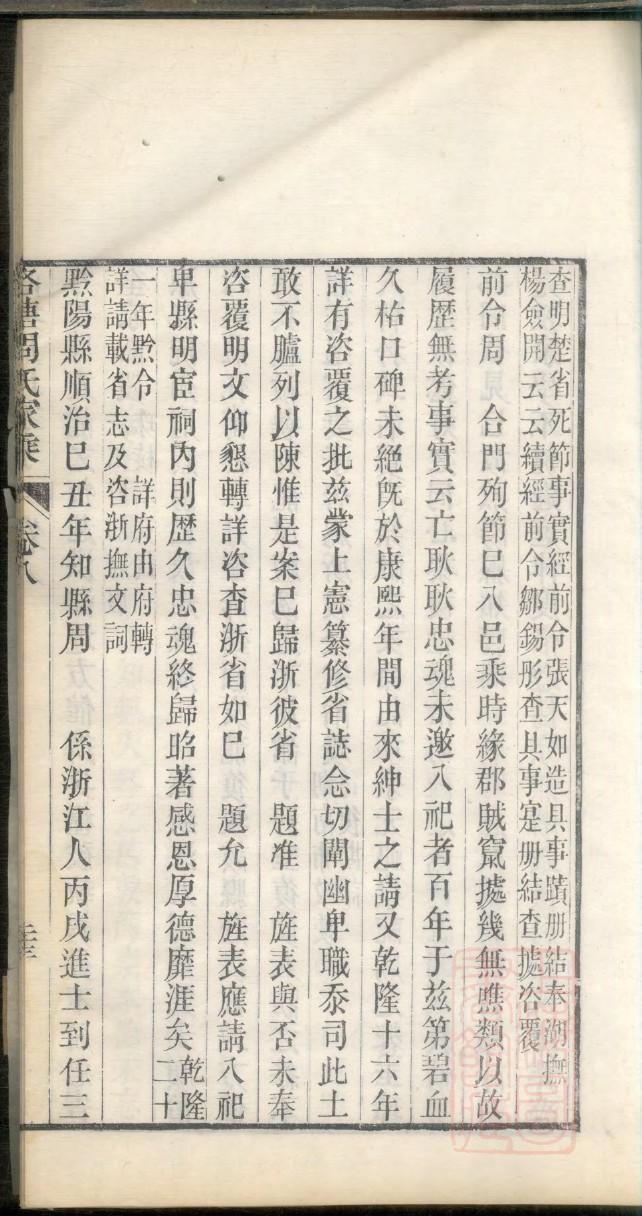 查明楚省死節事實經前令張天如造具事蹟册結奉湖撫
楊僉開云云續經前令鄒錫彤查具事寔册結查據咨覆
前令周 合門殉節巳八邑乘時緣郡賊竄據幾無噍類以故
履歷無考事實云亡耿耿忠魂未邀入祀者百年于兹第碧血
久枯口碑未絕旣於康熙年間由來紳士之請又乾隆十六年
詳有咨覆之批兹蒙上憲纂修省誌念切闡幽卑職忝司此土
敢不臚列以陳惟是案巳歸浙彼省 題准 旌表與否未奉
咨覆明文仰懇轉詳咨査浙省如巳 題允 旌表應請入祀
卑縣明宦祠內則歷久忠魂終歸昭著感恩厚德靡涯矣乾隆二十
一年黔令 詳府由府轉
詳請載省志及咨浙撫文詞
黔陽縣順治巳丑年知縣周 係浙江人丙戌進士到任三
周氏家乘 卷八